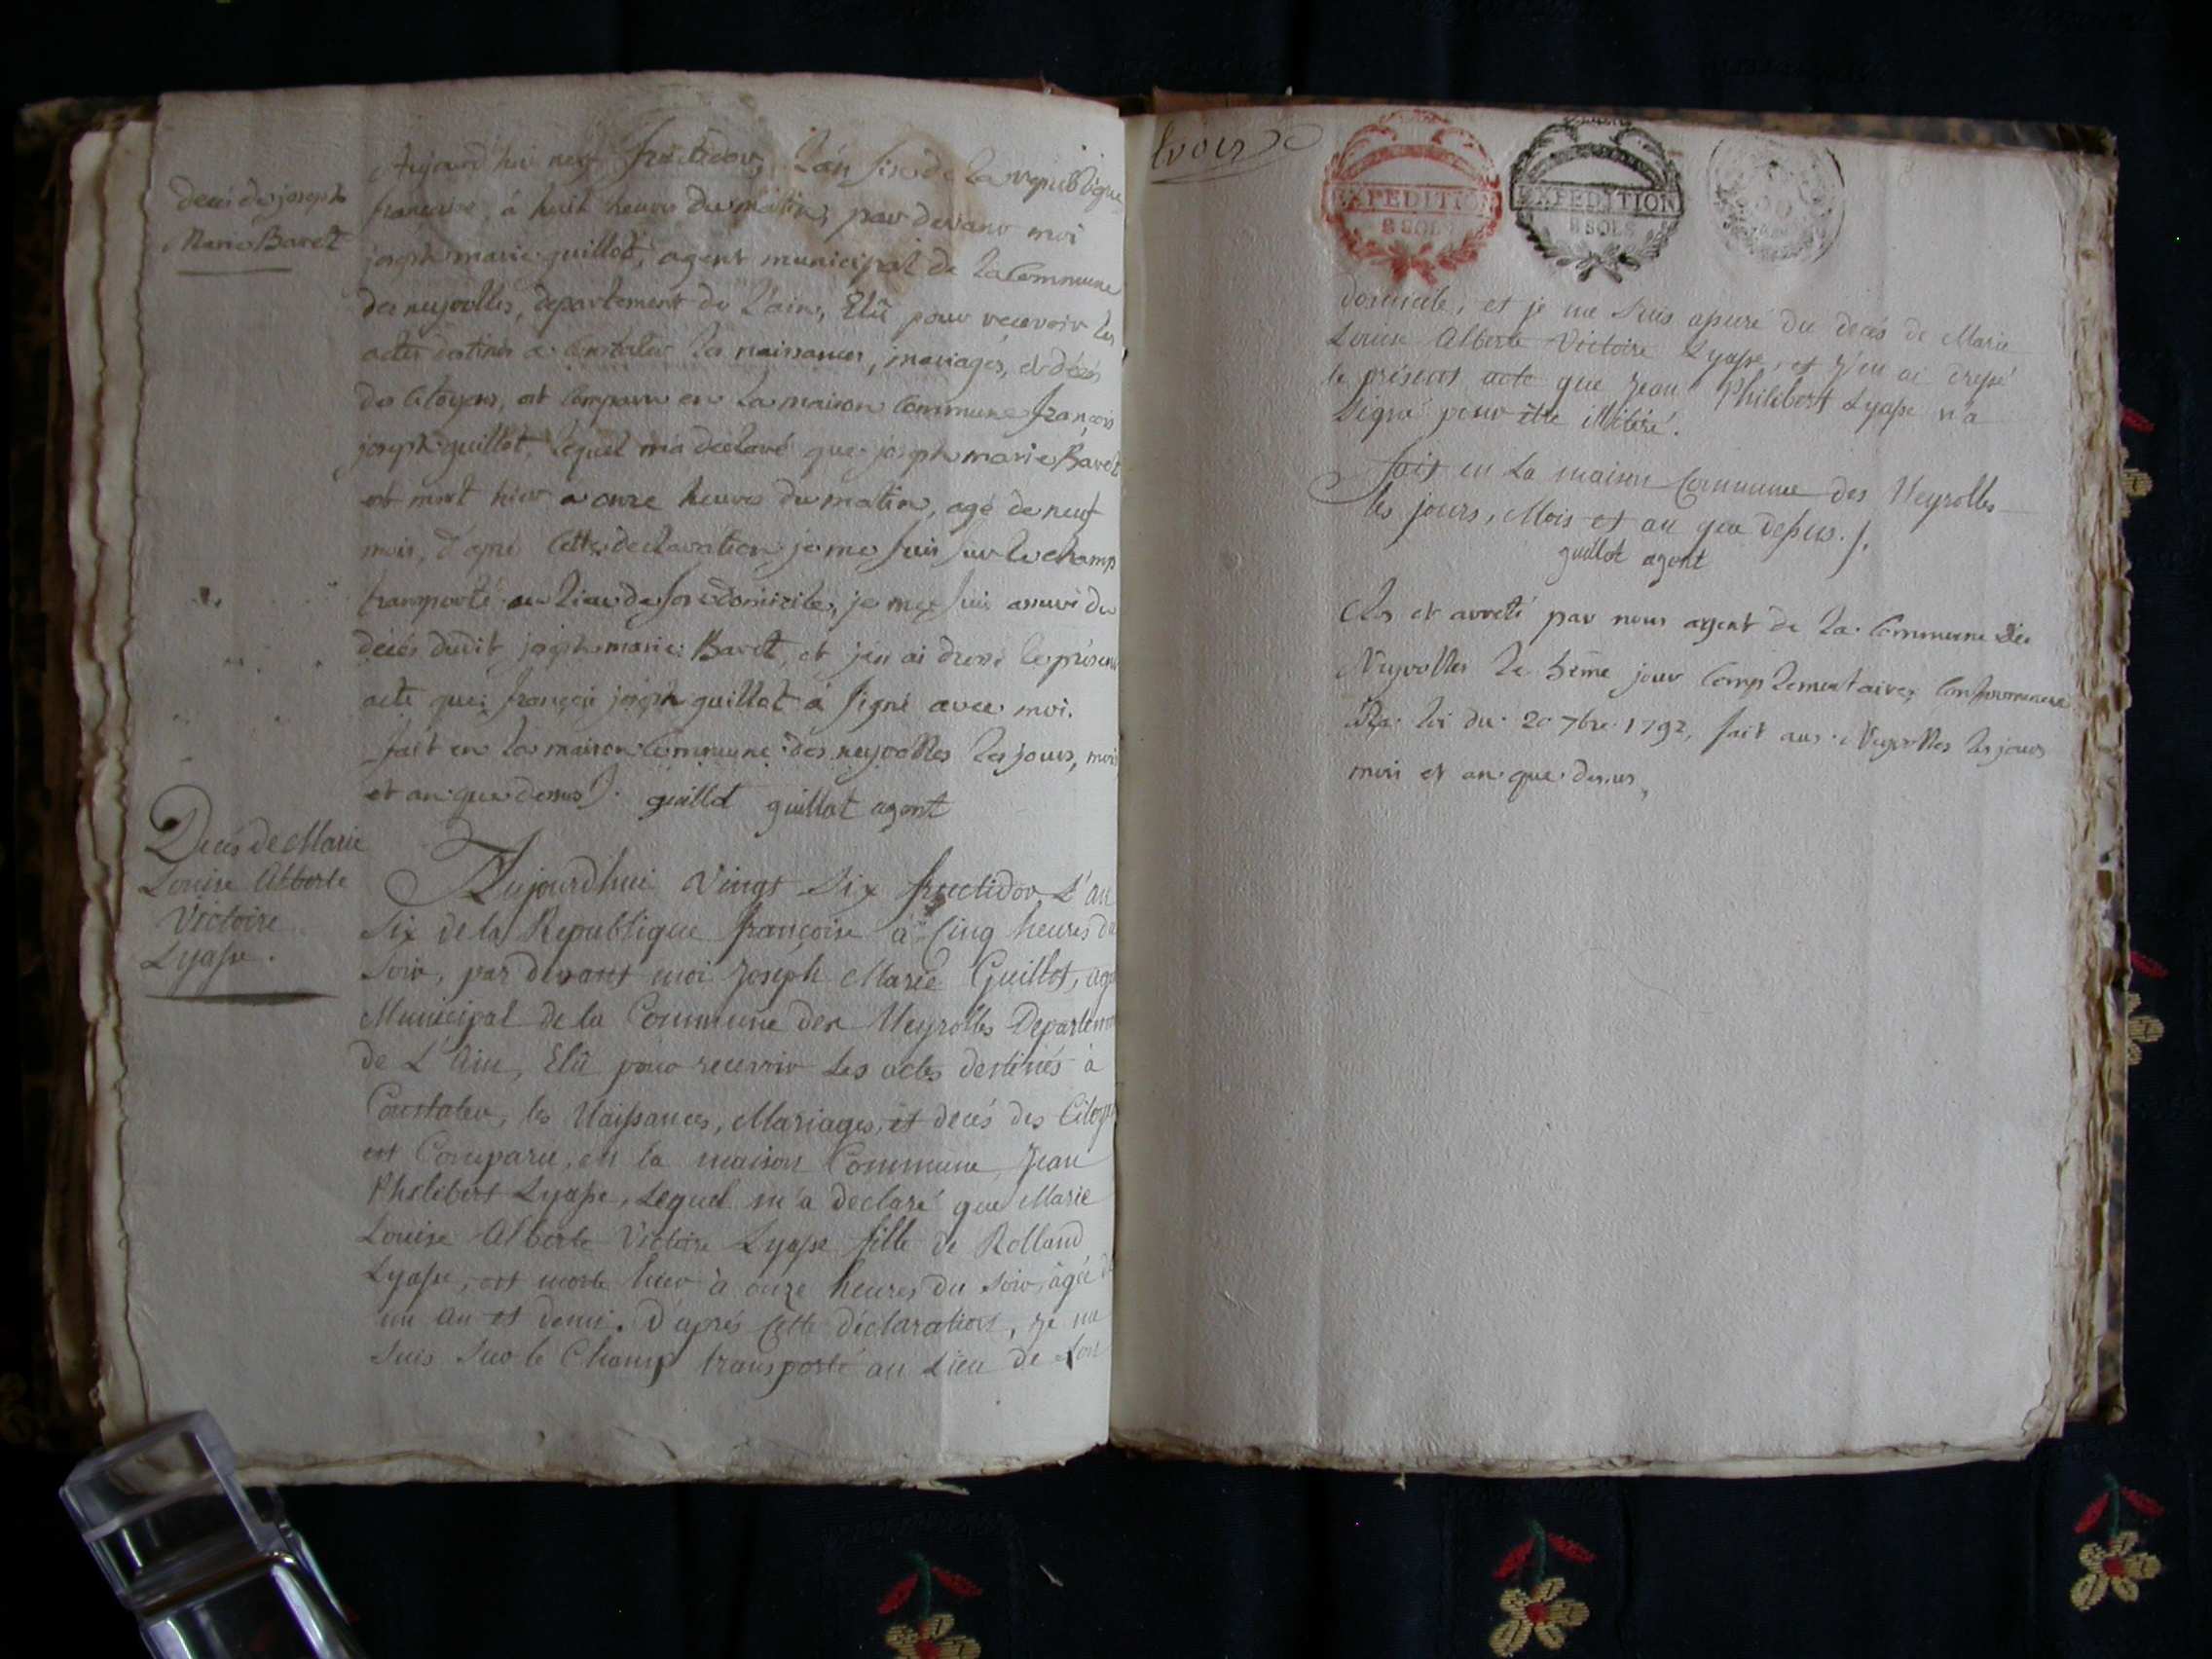 decès de joseph
Marie Baret
Aujourd'hui neuf fructidor, L'an six de la republique
francaise, à huit heures du matin, par devant moi
joseph marie guillot, agent municipal de la Commune
des neyrolles, departement de L'ain, Elû pour recevoir les
actes destinés a Constater les naissances, mariages, et décés
des Citoyens, est Comparu en la maison Commune françois
joseph guillot, lequel m'a declaré que joseph marie Baret
est mort hier a onze heures du matin, agé de neuf
mois, d'apres cette declaration je me suis sur le champ
transporté au lieu de son domicile, je me suis assuré du
décés dudit joseph marie Baret, et j'en ai dressé le présent
acte que françois joseph guillot à signé avec moi.
fait en la maison Commune des neyrolles les jours, mois
et an que dessus. guillot guillot agent
Deces de Marie
Louise Alberte
Victoire
Lyasse.
Aujourdhui Vingt Six fructidor L'an
Six de la Republique françoise à Cinq heures du
Soir, par devant moi Joseph Marie Guillot, agen
Municipal de la Commune des Neyrolles Departem
de L'Ain, Elû pour recevoir Les actes destinés à
Constater, les Naissances, Mariages, et decés des Citoye
est Comparu, en la maison Commune, Jean
Philibert Lyasse, Lequel m'a declaré que Marie
Louise Alberte Victoire Lyasse fille de Rolland
Lyasse, est morte hier à onze heures du Soir, âgée de
un an et demi. D'aprés Cette déclaration, Je me
Suis Sur le Champ transporté au Lieu de Son
EXPEDITION
8 SOLS
EXPEDITION
8 SOLS
domicile, et je me Suis assuré du decés de Marie
Louise Alberte Victoire Lyasse, et J'en ai dressé
le présent acte que Jean Philibert Lyasse n'a
Signé pour être illitéré.
fait en La maison Commune des Neyrolles
les jours, Mois et an que dessus.
guillot agent
Clos et arreté par nous agent de la Commune des
Neyrolles le 5ème jour Complementaire, Conformement
à la loi du 20 7bre 1792, fait aux Neyrolles les jours
mois et an que dessus,